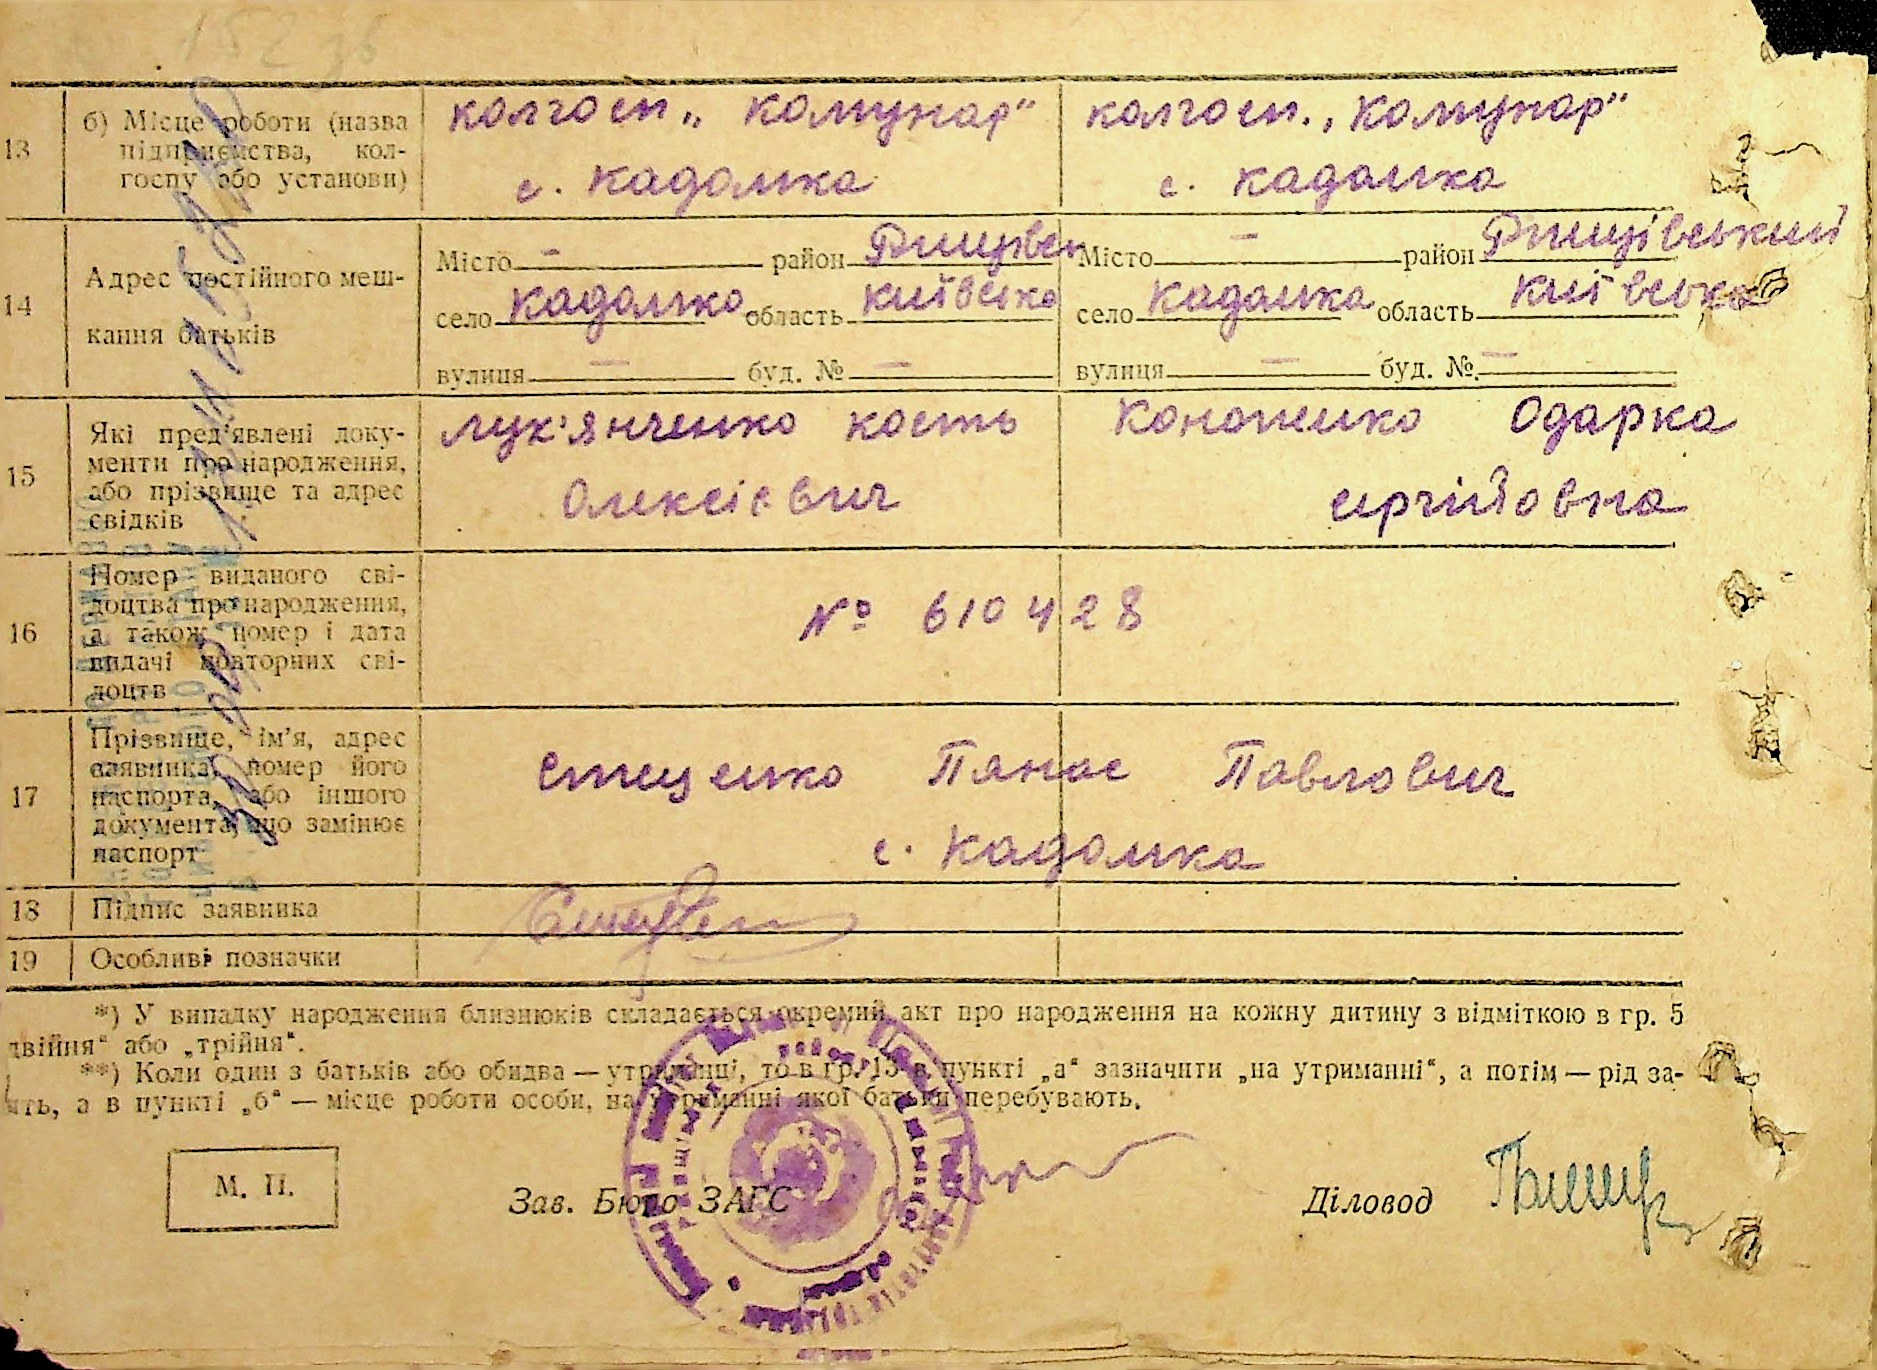 152 зв
13
б) Місце роботи (назва
підприємства, кол-
госпу або установи)
колгосп „Комунар"
с. Кадомка
колгосп „Комунар"
с. Кадомка
14
Адрес постійного меш-
кання батьків
Місто — район Ржищівськ
село Кадомка область Київська
вулиця — буд. № —
Місто — район Ржищівський
село Кадомка область Київська
вулиця — буд. № —
15
Які пред'явлені доку-
менти про народження,
або прізвище та адрес
свідків
Лук'янченко Кость
Олексієвич
Кононенко Одарка
Сергіївна
16
Номер виданого сві-
доцтва про народження,
а також номер і дата
видачі повторних сві-
доцтв
№ 610428
17
Прізвище, ім'я, адрес
заявника, номер його
паспорта, або іншого
документа, що замінює
паспорт
Стеценко Панас Павлович
с. Кадомка
18
Підпис заявника
19
Особливі позначки
*) У випадку народження близнюків складається окремий акт про народження на кожну дитину з відміткою в гр. 5
двійня" або „трійня".
**) Коли один з батьків або обидва — утриманці, то в гр. 13 в пункті „а" зазначити „на утриманні", а потім — рід за-
ять, а в пункті „б" — місце роботи особи, на утриманні якої батьки перебувають.
М. П.
Зав. Бюро ЗАГС
Діловод